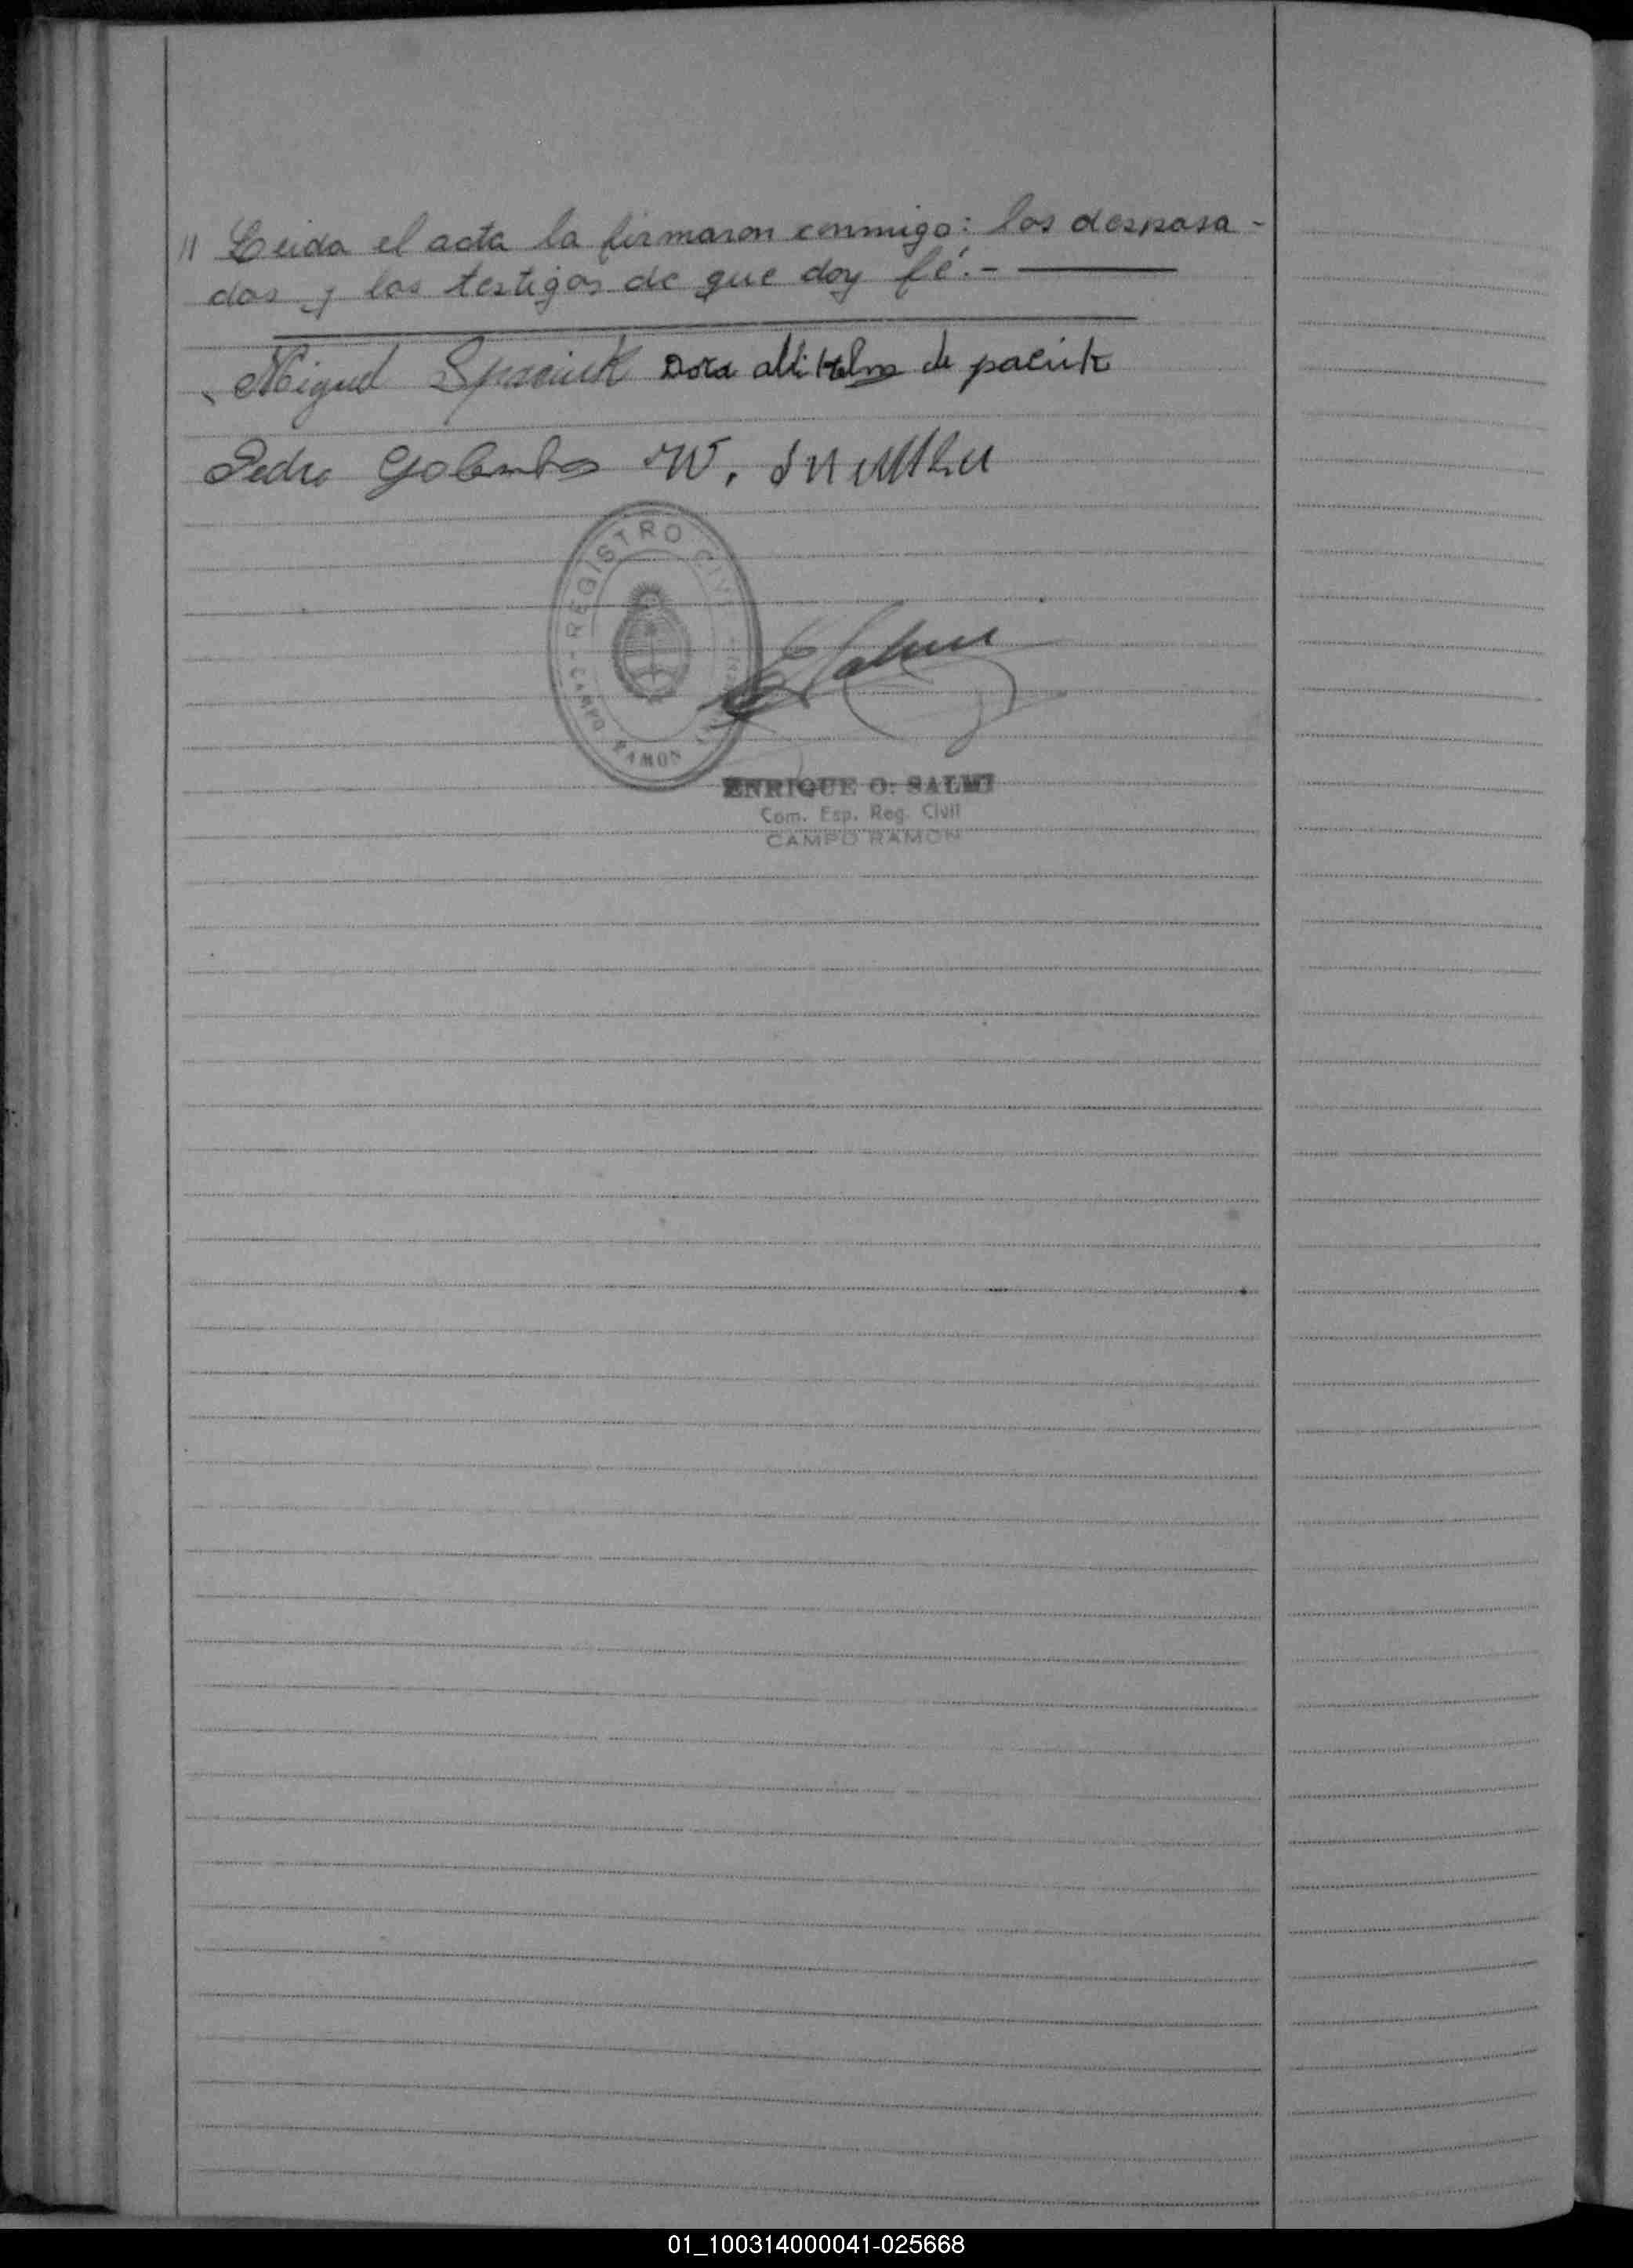 " Leida el acta la firmaron conmigo: los desposa-
dos y los testigos de que doy fé.-
Miguel Spaciuk Dora de paciuk
Pedro W.
REGISTRO CIVIL
CAMPO RAMON
ENRIQUE O. SALMI
Com. Esp. Reg. Civil
CAMPO RAMON
01_100314000041-025668